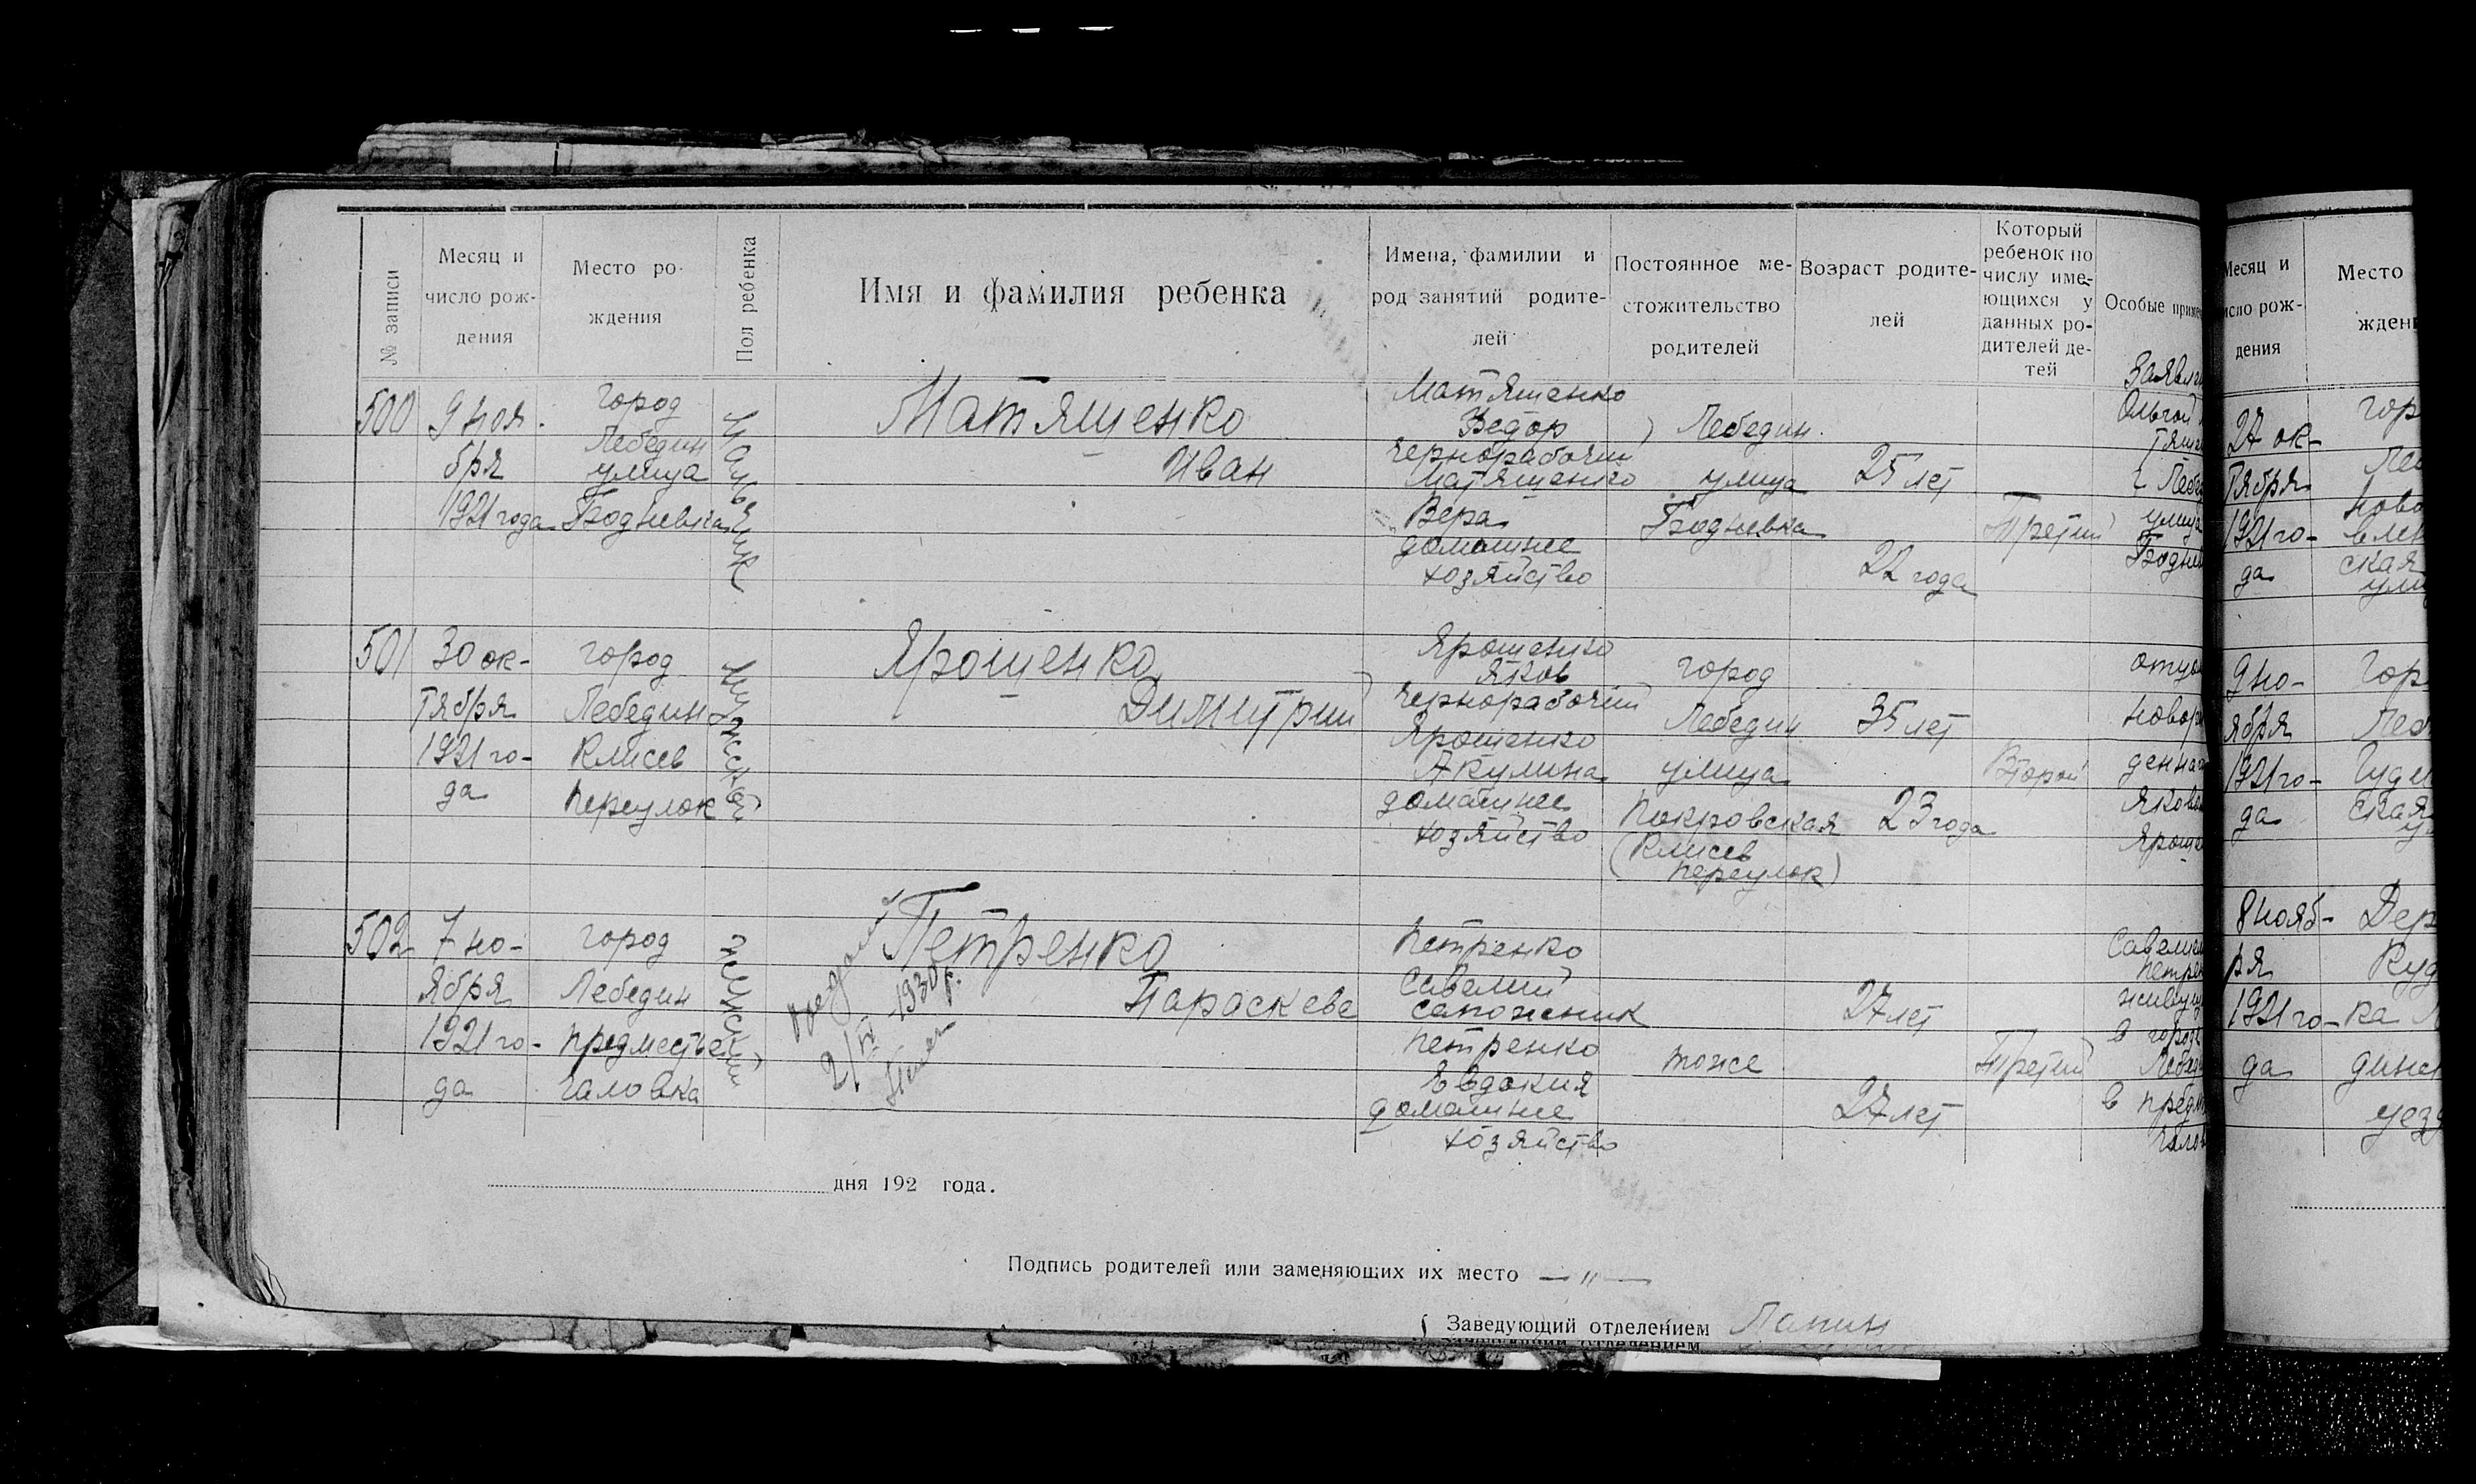 № записи
Месяц и
число рож-
дения
Место ро-
ждения
Пол ребенка
Имя и фамилия ребенка
Имена, фамилии и
род занятий родите-
лей
Постоянное ме-
стожительство
родителей
Возраст родите-
лей
Который
ребенок по
числу име-
ющихся у
данных ро-
дителей де-
тей
Особые приме
500
9 ноя.
бря
1921 года
город
Лебедин
улица
Бодневка
Мальчик
Матященко
Иван
Матященко
Федор
чернорабочий
Матященко
Вера
домашнее
хозяйство
Лебедин
улица
Бодневка
25 лет
22 года
Третий
Заявл
Ольгой
улица
501
30 ок-
тября
1921 го-
да
город
Лебедин
Клисев
переулок
Мужской
Ярошенко
Димитрий
Ярошенко
Яков
чернорабочий
Ярошенко
Акулина
домашнее
хозяйство
город
Лебедин
улица
Покровская
(Клисев
переулок)
35 лет
23 года
Второй
отцо
новоро
502
7 но-
ября
1921 го-
да
город
Лебедин
предместье
женский
Петренко
Параскева
2/IV 1930 г.
Петренко
Савелий
сапожник
Петренко
Евдокия
домашнее
хозяйство
тоже
27 лет
27 лет
Третий
в городе
дня 192 года.
Подпись родителей или заменяющих их место — " —
Заведующий отделением
Месяц и
исло рож-
дения
Место
жден
27 ок-
тября
1921 го-
да
гор
Леб
ская
ули
9 но-
ября
1921 го-
да
Гор
Леб
ская
8 нояб-
ря
1921 го-
да
Дер
Куд
уезд